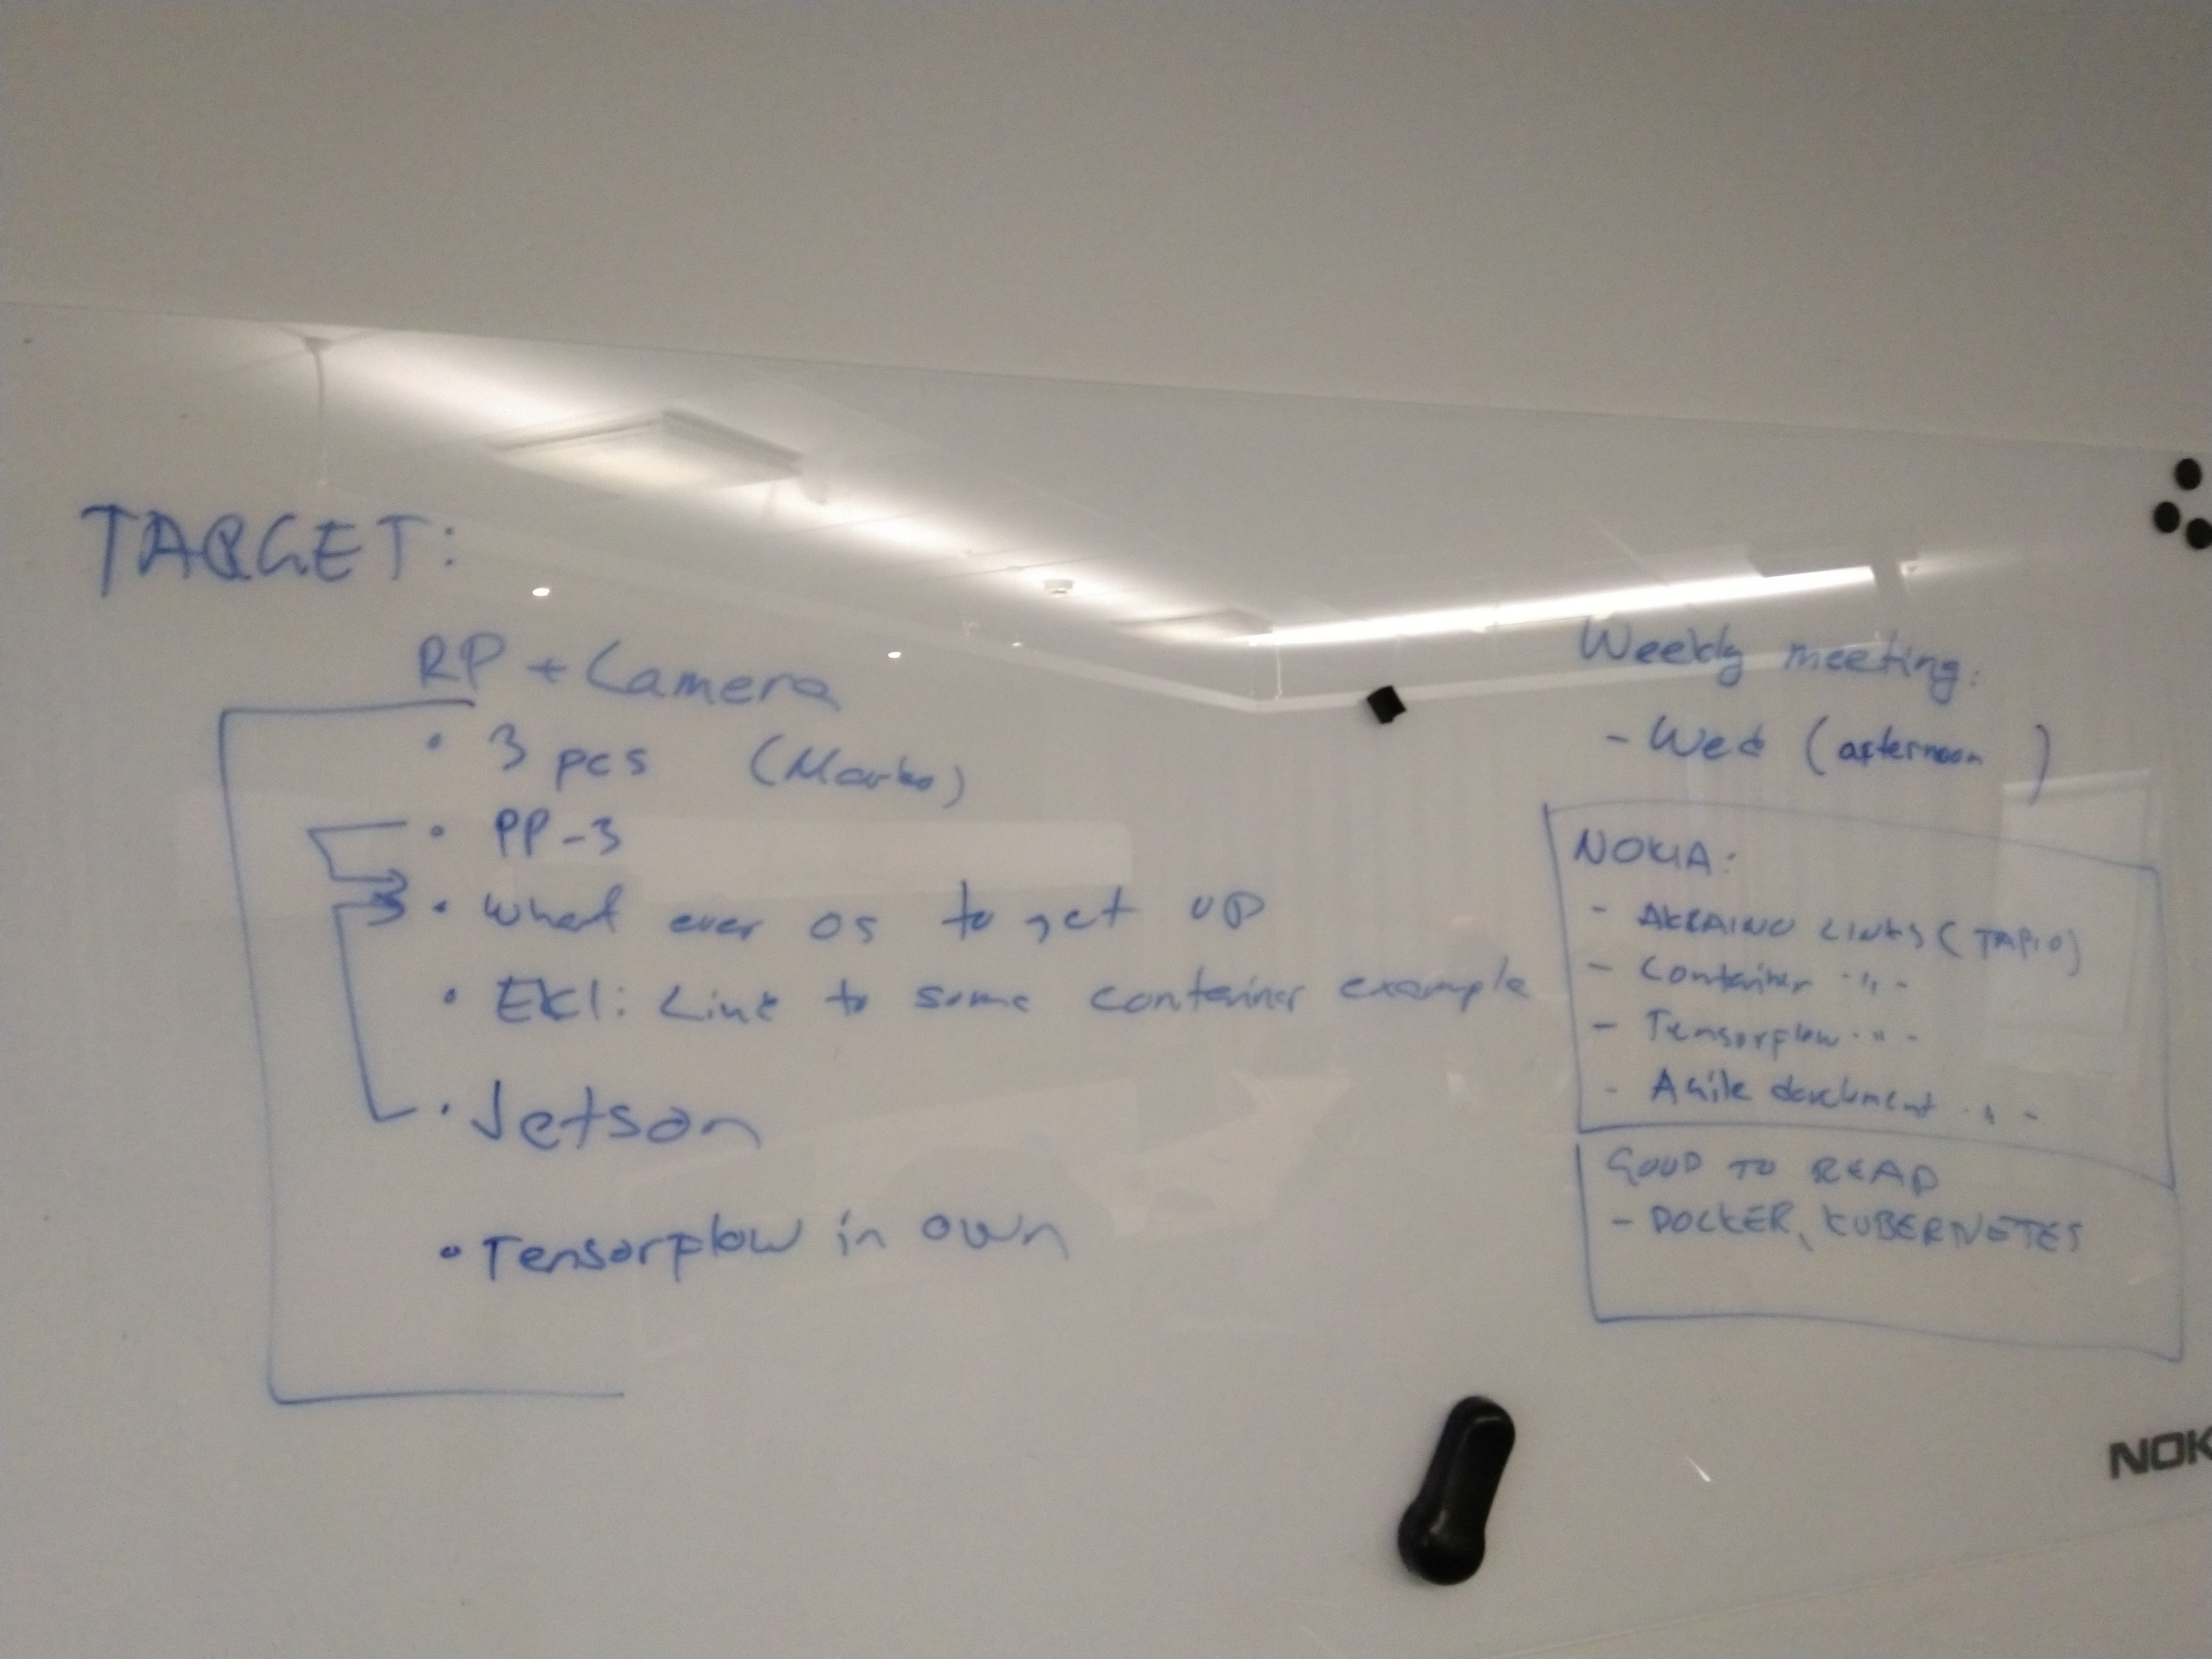 TARGET:
RP + Camera
• 3 pcs (Marko)
• PP-3
• What ever OS to get up
• EKI: Link to some container example
• Jetson
• Tensorflow in own
Weekly meeting:
- Wed (afternoon )
NOKIA:
- AKRAINO LINKS (TAPIO)
- Container -"-
- Tensorflow -"-
- Agile -"-
GOOD TO READ
- DOCKER, KUBERNETES
NOK